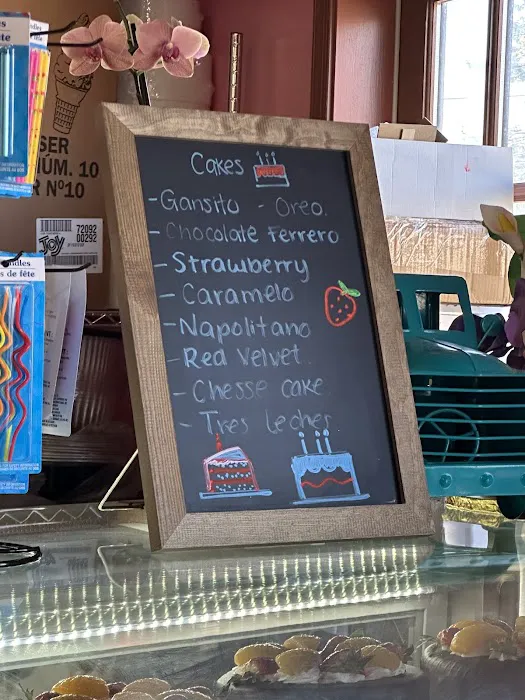 Cakes
- Gansito - Oreo.
- Chocolate Ferrero
- Strawberry
- Caramelo
- Napolitano
- Red Velvet.
- Chesse cake
- Tres leches
SER
NÚM. 10
R Nº10
JOY
72092
00292
ndles
s de fête
ndles
ête